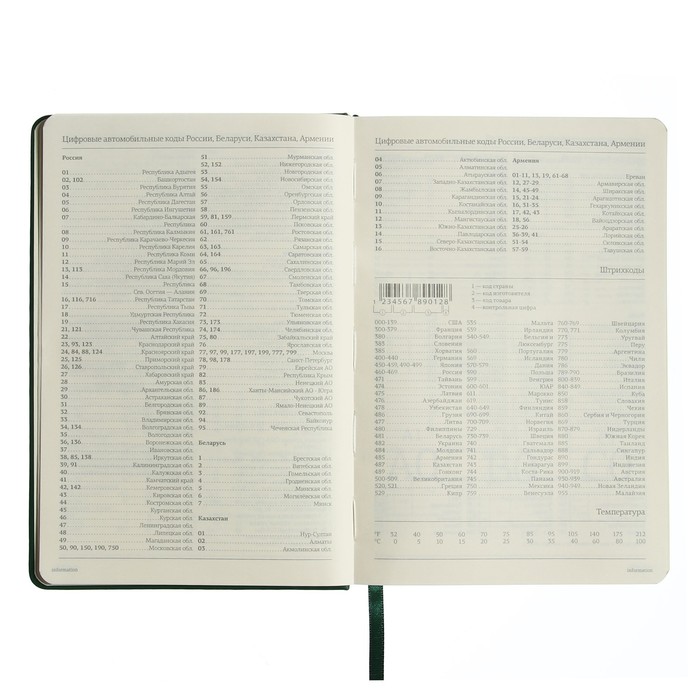 Цифровые автомобильные коды России, Беларуси, Казахстана, Армении
Россия
01 Республика Адыгея
02, 102 Башкортостан
03 Республика Бурятия
04 Республика Алтай
05 Республика Дагестан
06 Республика Ингушетия
07 Кабардино-Балкарская
Республика
08 Республика Калмыкия
09 Республика Карачаево-Черкесия
10 Республика Карелия
11 Республика Коми
12 Республика Марий Эл
13, 113 Республика Мордовия
14 Республика Саха (Якутия)
15 Республика
Сев. Осетия — Алания
16, 116, 716 Республика Татарстан
17 Республика Тыва
18 Удмуртская Республика
19 Республика Хакасия
21, 121 Чувашская Республика
22 Алтайский край
23, 93, 123 Краснодарский край
24, 84, 88, 124 Красноярский край
25, 125 Приморский край
26, 126 Ставропольский край
27 Хабаровский край
28 Амурская обл.
29 Архангельская обл.
30 Астраханская обл.
31 Белгородская обл.
32 Брянская обл.
33 Владимирская обл.
34, 134 Волгоградская обл.
35 Вологодская обл.
36, 136 Воронежская обл.
37 Ивановская обл.
38, 85, 138 Иркутская обл.
39, 91 Калининградская обл.
40 Калужская обл.
41 Камчатский край
42, 142 Кемеровская обл.
43 Кировская обл.
44 Костромская обл.
45 Курганская обл.
46 Курская обл.
47 Ленинградская обл.
48 Липецкая обл.
49 Магаданская обл.
50, 90, 150, 190, 750 Московская обл.
51 Мурманская обл.
52, 152 Нижегородская обл.
53 Новгородская обл.
54, 154 Новосибирская обл.
55 Омская обл.
56 Оренбургская обл.
57 Орловская обл.
58 Пензенская обл.
59, 81, 159 Пермский край
60 Псковская обл.
61, 161, 761 Ростовская обл.
62 Рязанская обл.
63, 163 Самарская обл.
64, 164 Саратовская обл.
65 Сахалинская обл.
66, 96, 196 Свердловская обл.
67 Смоленская обл.
68 Тамбовская обл.
69 Тверская обл.
70 Томская обл.
71 Тульская обл.
72 Тюменская обл.
73, 173 Ульяновская обл.
74, 174 Челябинская обл.
75, 80 Забайкальский край
76 Ярославская обл.
77, 97, 99, 177, 197, 199, 777, 799 Москва
78, 98, 178 Санкт-Петербург
79 Еврейская АО
82 Республика Крым
83 Ненецкий АО
86, 186 Ханты-Мансийский АО - Югра
87 Чукотский АО
89 Ямало-Ненецкий АО
92 Севастополь
94 Байконур
95 Чеченская Республика
Беларусь
1 Брестская обл.
2 Витебская обл.
3 Гомельская обл.
4 Гродненская обл.
5 Минская обл.
6 Могилевская обл.
7 Минск
Казахстан
01 Нур Султан
02 Алматы
03 Акмолинская обл.
information
Цифровые автомобильные коды России, Беларуси, Казахстана, Армении
04 Актюбинская обл.
05 Алматинская обл.
06 Атырауская обл.
07 Западно-Казахстанская обл.
08 Жамбылская обл.
09 Карагандинская обл.
10 Костанайская обл.
11 Кызылординская обл.
12 Мангистауская обл.
13 Южно-Казахстанская обл.
14 Павлодарская обл.
15 Северо-Казахстанская обл.
16 Восточно-Казахстанская обл.
Армения
01-11, 13, 19, 61-68 Ереван
12, 27-29 Армавирская обл.
14, 45-49 Ширакская обл.
15, 21-24 Арагацотнская обл.
16, 31-35 Гехаркуникская обл.
17, 42, 43 Котайкская обл.
18, 56 Вайоцдзорская обл.
25-26 Араратская обл.
36-39, 41 Лорийская обл.
51-54 Сюникская обл.
57-59 Тавушская обл.
Штрихкоды
1 234567 890128
1 — код страны
2 — код изготовителя
3 — код товара
4 — контрольная цифра
000-139 США
300-379 Франция
380 Болгария
383 Словения
385 Хорватия
400-440 Германия
450-459, 490-499 Япония
460-469 Россия
471 Тайвань
474 Эстония
475 Латвия
476 Азербайджан
478 Узбекистан
486 Грузия
477 Литва
480 Филиппины
481 Беларусь
482 Украина
484 Молдова
485 Армения
487 Казахстан
489 Гонконг
500-509 Великобритания
520, 521 Греция
529 Кипр
535 Мальта
539 Ирландия
540-549 Бельгия и
Люксембург
560 Португалия
569 Исландия
570-579 Дания
590 Польша
599 Венгрия
600-601 ЮАР
611 Марокко
619 Тунис
640-649 Финляндия
690-699 Китай
700-709 Норвегия
729 Израиль
730-739 Швеция
740 Гватемала
741 Сальвадор
742 Гондурас
743 Никарагуа
744 Коста-Рика
745 Панама
750 Мексика
759 Венесуэла
760-769 Швейцария
770, 771 Колумбия
773 Уругвай
775 Перу
779 Аргентина
780 Чили
786 Эквадор
789, 790 Бразилия
800-839 Италия
840-849 Испания
850 Куба
858 Словакия
859 Чехия
860 Сербия и Черногория
869 Турция
870-879 Нидерланды
880 Южная Корея
885 Таиланд
888 Сингапур
890 Индия
899 Индонезия
900-919 Австрия
930-939 Австралия
940-949 Новая Зеландия
955 Малайзия
Температура
°F 32 40 50 60 70 75 85 95 105 140 175 212
°C 0 5 10 15 20 25 30 35 40 60 80 100
information